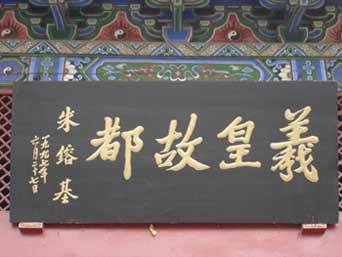 羲皇故都
朱镕基
一九九七年
六月二十七日